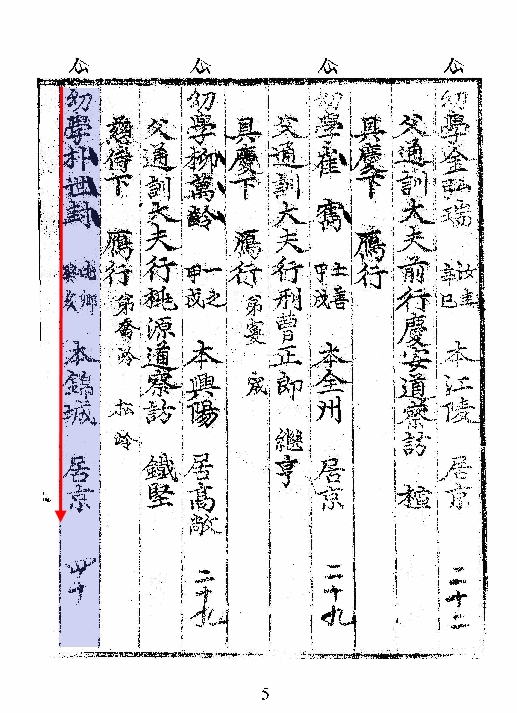 仏 仏 仏 仏
幼學金弘瑞 汝圭 辛巳 本江陵 居京 二十二
父通訓大夫前行慶安道察訪 楦
具慶下 鴈行
幼學崔寯 士喜 甲戌 本全州 居京 二十九
父通訓大夫行刑曹正郎 繼亨
具慶下 鴈行 弟寔 宬
幼學柳萬齡 一之 甲戌 本興陽 居高敞 二十九
父通訓大夫行桃源道察訪 鐵堅
慈侍下 鴈行 弟喬齡 松齡
幼學朴世對 癸亥 本錦城 居京 四十
5